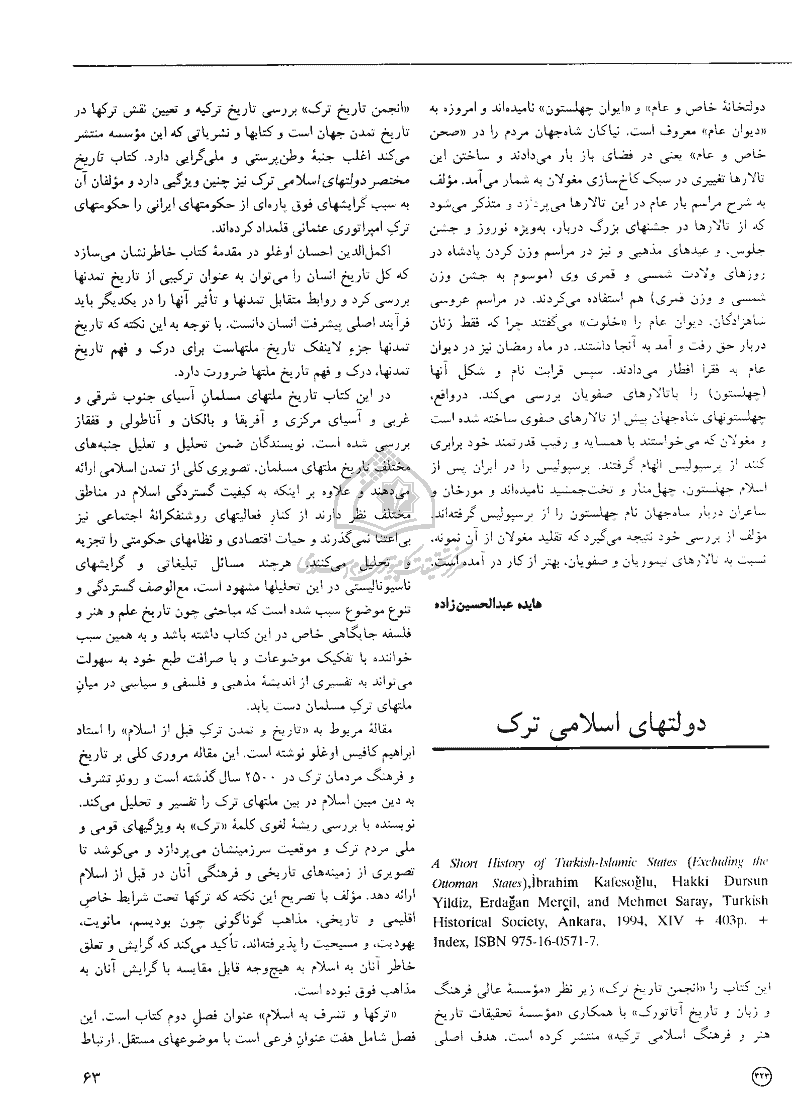 دولتخانهٔ خاص و عام» و «ایوان چهلستون» نامیده‌اند و امروزه به
«دیوان عام» معروف است. نیاکان شاه‌جهان مردم را در «صحن
خاص و عام» یعنی در فضای باز بار می‌دادند و ساختن این
تالارها تغییری در سبک کاخ‌سازی مغولان به شمار می‌آمد. مؤلف
به شرح مراسم بار عام در این تالارها می‌پردازد و متذکر می‌شود
که از تالارها در جشنهای بزرگ دربار، به‌ویژه نوروز و جشن
جلوس، و عیدهای مذهبی و نیز در مراسم وزن کردن پادشاه در
روزهای ولادت شمسی و قمری وی (موسوم به جشن وزن
شمسی و وزن قمری) هم استفاده می‌کردند. در مراسم عروسی
شاهزادگان، دیوان عام را «خلوت» می‌گفتند چرا که فقط زنان
دربار حق رفت و آمد به آنجا داشتند. در ماه رمضان نیز در دیوان
عام به فقرا افطار می‌دادند. سپس قرابت نام و شکل آنها
(چهلستون) را باتالارهای صفویان بررسی می‌کند. درواقع،
چهلستونهای شاه‌جهان پیش از تالارهای صفوی ساخته شده است
و مغولان که می‌خواستند با همسایه و رقیب قدرتمند خود برابری
کنند از پرسپولیس الهام گرفتند. پرسپولیس را در ایران پس از
اسلام چهلستون، چهل‌منار و تخت‌جمشید نامیده‌اند و مورخان و
شاعران دربار شاه‌جهان نام چهلستون را از پرسپولیس گرفته‌اند.
مؤلف از بررسی خود نتیجه می‌گیرد که تقلید مغولان از آن نمونه،
نسبت به تالارهای تیموریان و صفویان، بهتر از کار در آمده است.
هایده عبدالحسین‌زاده
دولتهای اسلامی ترک
A Short History of Turkish-Islamic States (Excluding the
Ottoman States),İbrahim Kafesoğlu, Hakki Dursun
Yildiz, Erdağan Merçil, and Mehmet Saray, Turkish
Historical Society, Ankara, 1994, XIV + 403p. +
Index, ISBN 975-16-0571-7.
این کتاب را «انجمن تاریخ ترک» زیر نظر «مؤسسهٔ عالی فرهنگ
و زبان و تاریخ آتاتورک» با همکاری «مؤسسهٔ تحقیقات تاریخ
هنر و فرهنگ اسلامی ترکیه» منتشر کرده است. هدف اصلی
«انجمن تاریخ ترک» بررسی تاریخ ترکیه و تعیین نقش ترکها در
تاریخ تمدن جهان است و کتابها و نشریاتی که این مؤسسه منتشر
می‌کند اغلب جنبهٔ وطن‌پرستی و ملی‌گرایی دارد. کتاب تاریخ
مختصر دولتهای اسلامی ترک نیز چنین ویژگی دارد و مؤلفان آن
به سبب گرایشهای فوق پاره‌ای از حکومتهای ایرانی را حکومتهای
ترکِ امپراتوری عثمانی قلمداد کرده‌اند.
اکمل‌الدین احسان اوغلو در مقدمهٔ کتاب خاطرنشان می‌سازد
که کل تاریخ انسان را می‌توان به عنوان ترکیبی از تاریخ تمدنها
بررسی کرد و روابط متقابل تمدنها و تأثیر آنها را در یکدیگر باید
فرآیند اصلی پیشرفت انسان دانست. با توجه به این نکته که تاریخ
تمدنها جزءِ لاینفک تاریخ ملتهاست برای درک و فهم تاریخ
تمدنها، درک و فهم تاریخ ملتها ضرورت دارد.
در این کتاب تاریخ ملتهای مسلمانِ آسیای جنوب شرقی و
غربی و آسیای مرکزی و آفریقا و بالکان و آناطولی و قفقاز
بررسی شده است. نویسندگان ضمن تحلیل و تعلیل جنبه‌های
مختلف تاریخ ملتهای مسلمان، تصویری کلی از تمدن اسلامی ارائه
می‌دهند و علاوه بر اینکه به کیفیت گستردگی اسلام در مناطق
مختلف نظر دارند از کنارِ فعالیتهای روشنفکرانهٔ اجتماعی نیز
بی‌اعتنا نمی‌گذرند و حیات اقتصادی و نظامهای حکومتی را تجزیه
و تحلیل می‌کنند. هرچند مسائل تبلیغاتی و گرایشهای
ناسیونالیستی در این تحلیلها مشهود است، مع‌الوصف گستردگی و
تنوع موضوع سبب شده است که مباحثی چون تاریخ علم و هنر و
فلسفه جایگاهی خاص در این کتاب داشته باشد و به همین سبب
خواننده با تفکیک موضوعات و با صرافت طبع خود به سهولت
می‌تواند به تفسیری از اندیشهٔ مذهبی و فلسفی و سیاسی در میانِ
ملتهای ترکِ مسلمان دست یابد.
مقالهٔ مربوط به «تاریخ و تمدن ترکِ قبل از اسلام» را استاد
ابراهیم کافیس اوغلو نوشته است. این مقاله مروری کلی بر تاریخ
و فرهنگ مردمان ترک در ۲۵۰۰ سال گذشته است و روندِ تشرف
به دین مبین اسلام در بین ملتهای ترک را تفسیر و تحلیل می‌کند.
نویسنده با بررسی ریشهٔ لغوی کلمهٔ «ترک» به ویژگیهای قومی و
ملی مردم ترک و موقعیت سرزمینشان می‌پردازد و می‌کوشد تا
تصویری از زمینه‌های تاریخی و فرهنگی آنان در قبل از اسلام
ارائه دهد. مؤلف با تصریح این نکته که ترکها تحت شرایط خاص
اقلیمی و تاریخی، مذاهب گوناگونی چون بودیسم، مانویت،
یهودیت، و مسیحیت را پذیرفته‌اند، تأکید می‌کند که گرایش و تعلق
خاطر آنان به اسلام به هیچ‌وجه قابل مقایسه با گرایش آنان به
مذاهب فوق نبوده است.
«ترکها و تشرف به اسلام» عنوان فصلِ دوم کتاب است. این
فصل شامل هفت عنوانِ فرعی است با موضوعهای مستقل. ارتباط
۶۳
۴۲۳